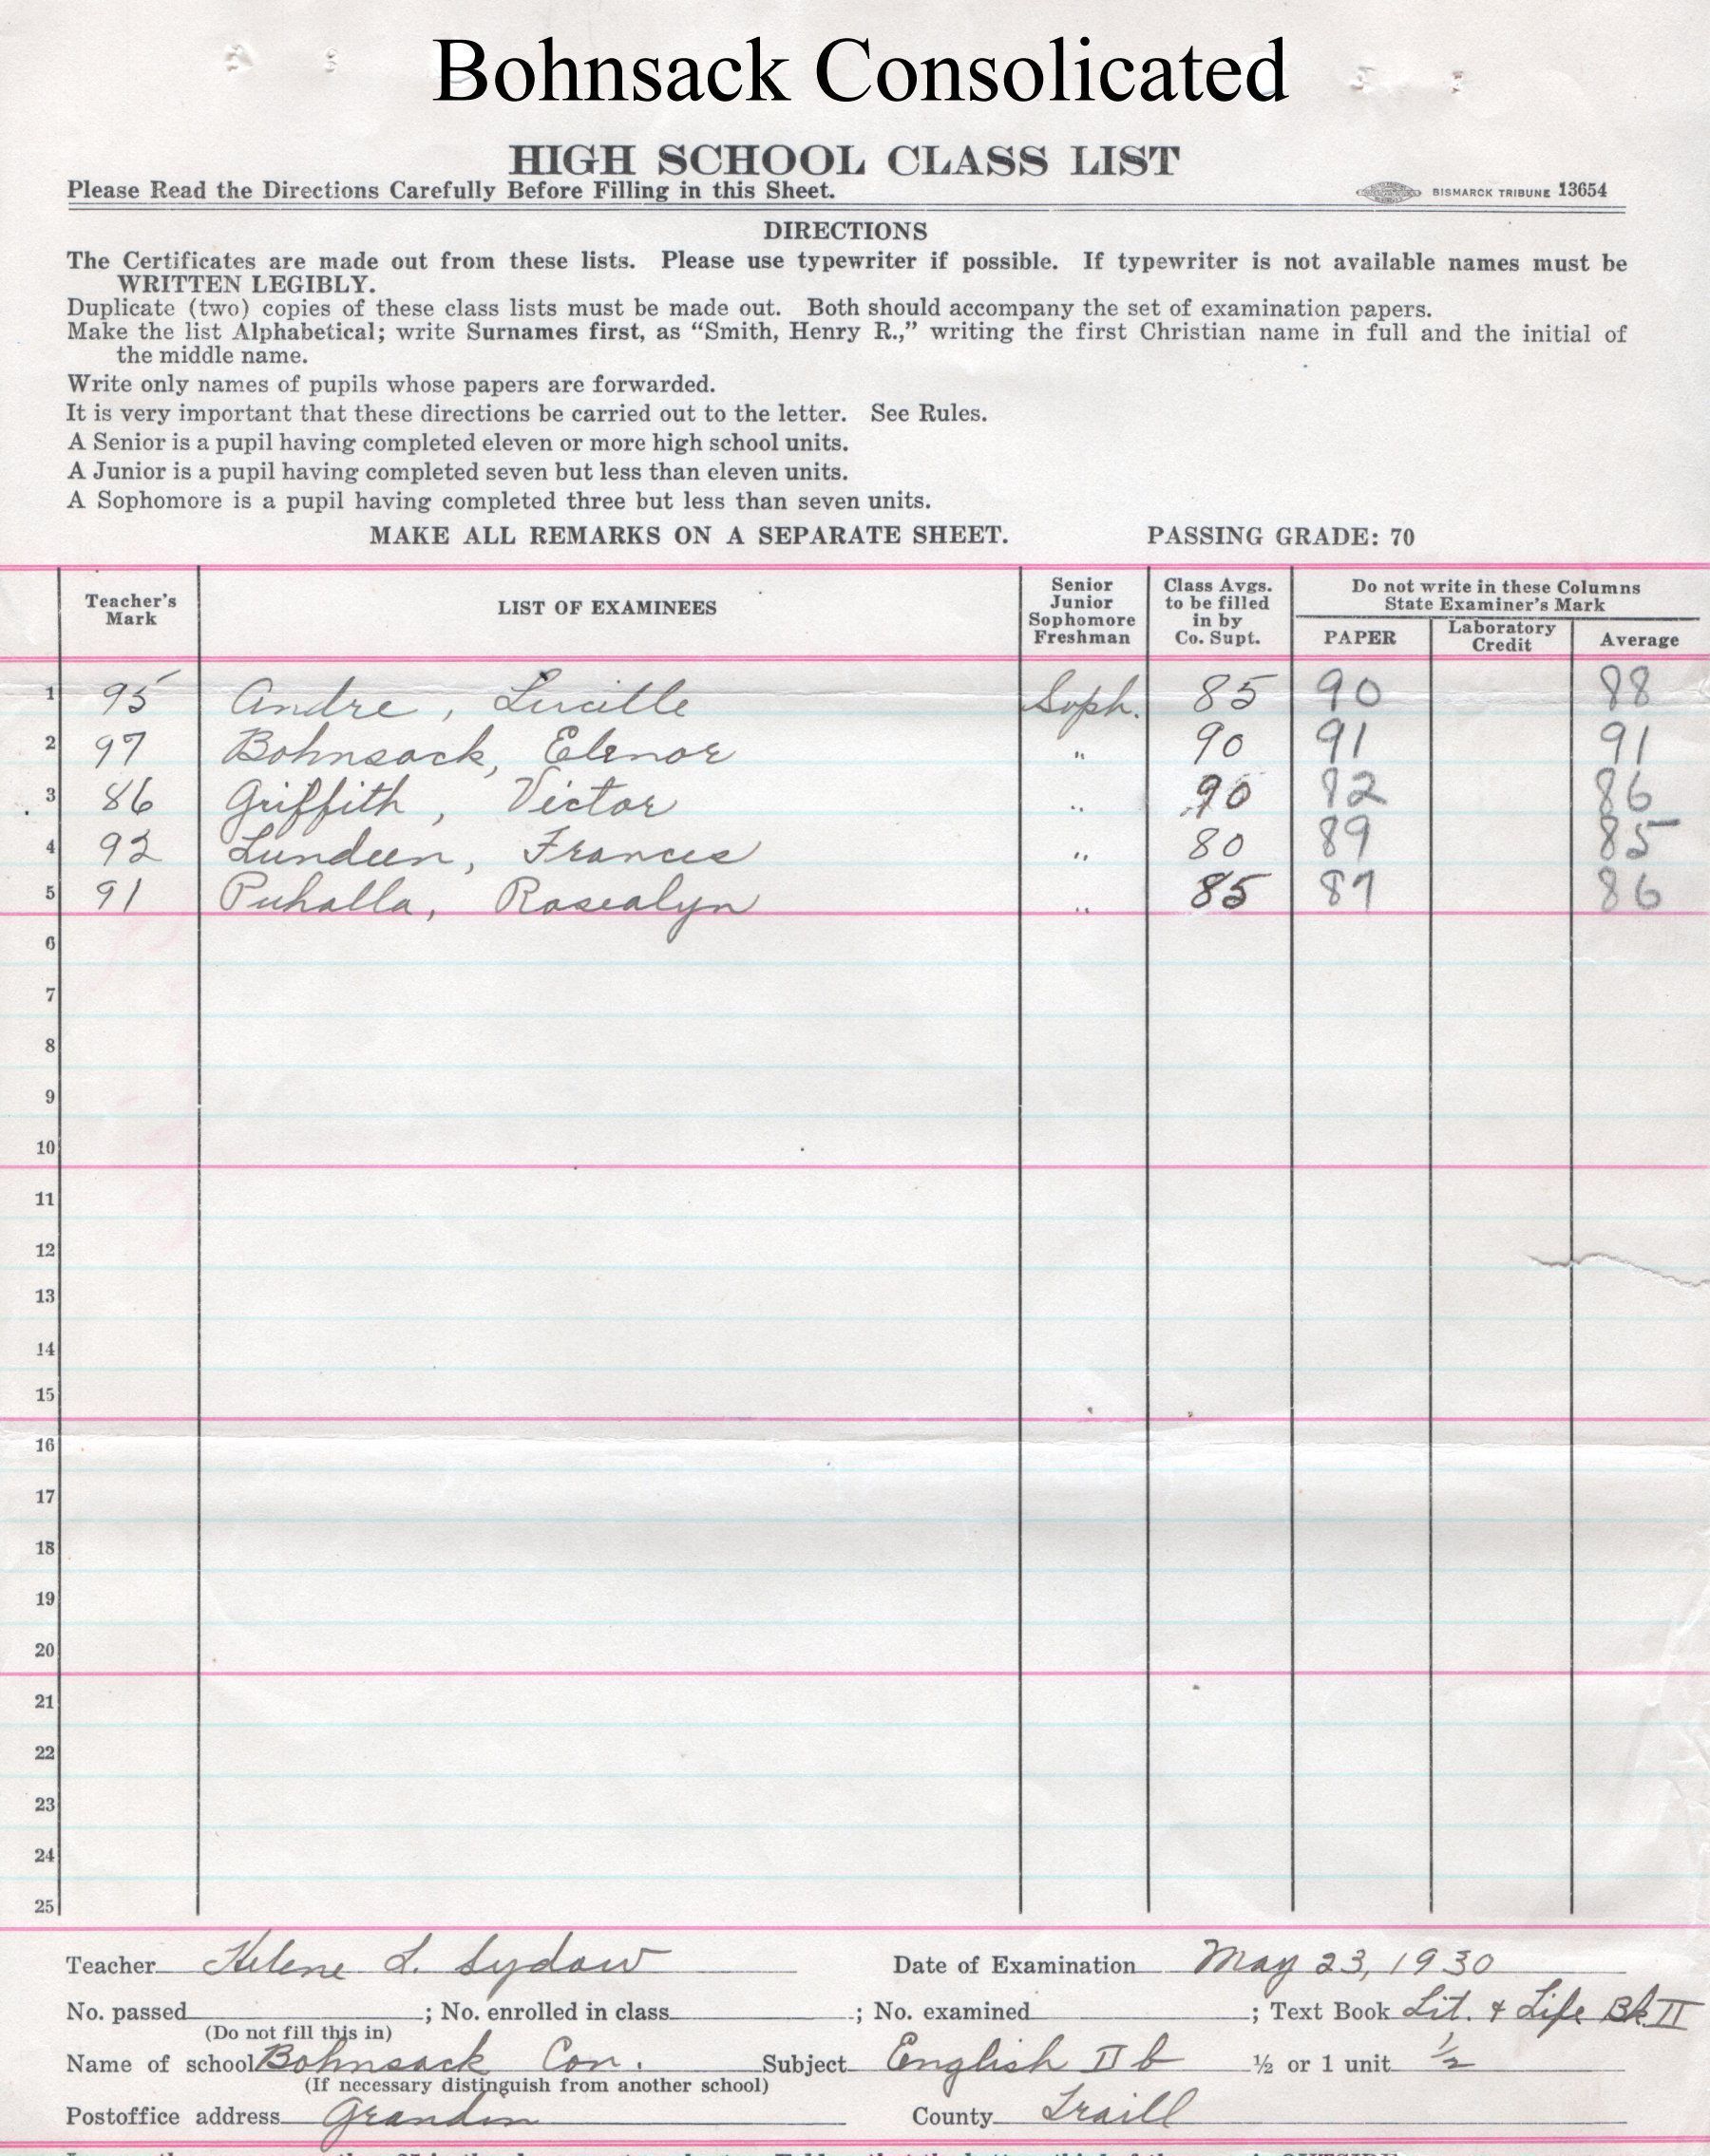 Bohnsack Consolicated
HIGH SCHOOL CLASS LIST
Please Read the Directions Carefully Before Filling in this Sheet. BISMARCK TRIBUNE 13654
DIRECTIONS
The Certificates are made out from these lists. Please use typewriter if possible. If typewriter is not available names must be
WRITTEN LEGIBLY.
Duplicate (two) copies of these class lists must be made out. Both should accompany the set of examination papers.
Make the list Alphabetical; write Surnames first, as “Smith, Henry R.,” writing the first Christian name in full and the initial of
the middle name.
Write only names of pupils whose papers are forwarded.
It is very important that these directions be carried out to the letter. See Rules.
A Senior is a pupil having completed eleven or more high school units.
A Junior is a pupil having completed seven but less than eleven units.
A Sophomore is a pupil having completed three but less than seven units.
MAKE ALL REMARKS ON A SEPARATE SHEET. PASSING GRADE: 70
Teacher's Mark LIST OF EXAMINEES Senior Junior Sophomore Freshman Class Avgs. to be filled in by Co. Supt. Do not write in these Columns State Examiner's Mark PAPER Laboratory Credit Average
1 95 Andre, Lucille Soph. 85 90 88
2 97 Bohnsack, Elenor " 90 91 91
3 86 Griffith, Victor " 90 82 86
4 92 Lundeen, Frances " 80 89 85
5 91 Puhalla, Rosealyn " 85 87 86
6
7
8
9
10
11
12
13
14
15
16
17
18
19
20
21
22
23
24
25
Teacher Helene L. Sydow Date of Examination May 23, 1930
No. passed ; No. enrolled in class ; No. examined ; Text Book Lit. & Life Bk II
(Do not fill this in)
Name of school Bohnsack Con. Subject English II b ½ or 1 unit ½
(If necessary distinguish from another school)
Postoffice address Grandin County Traill